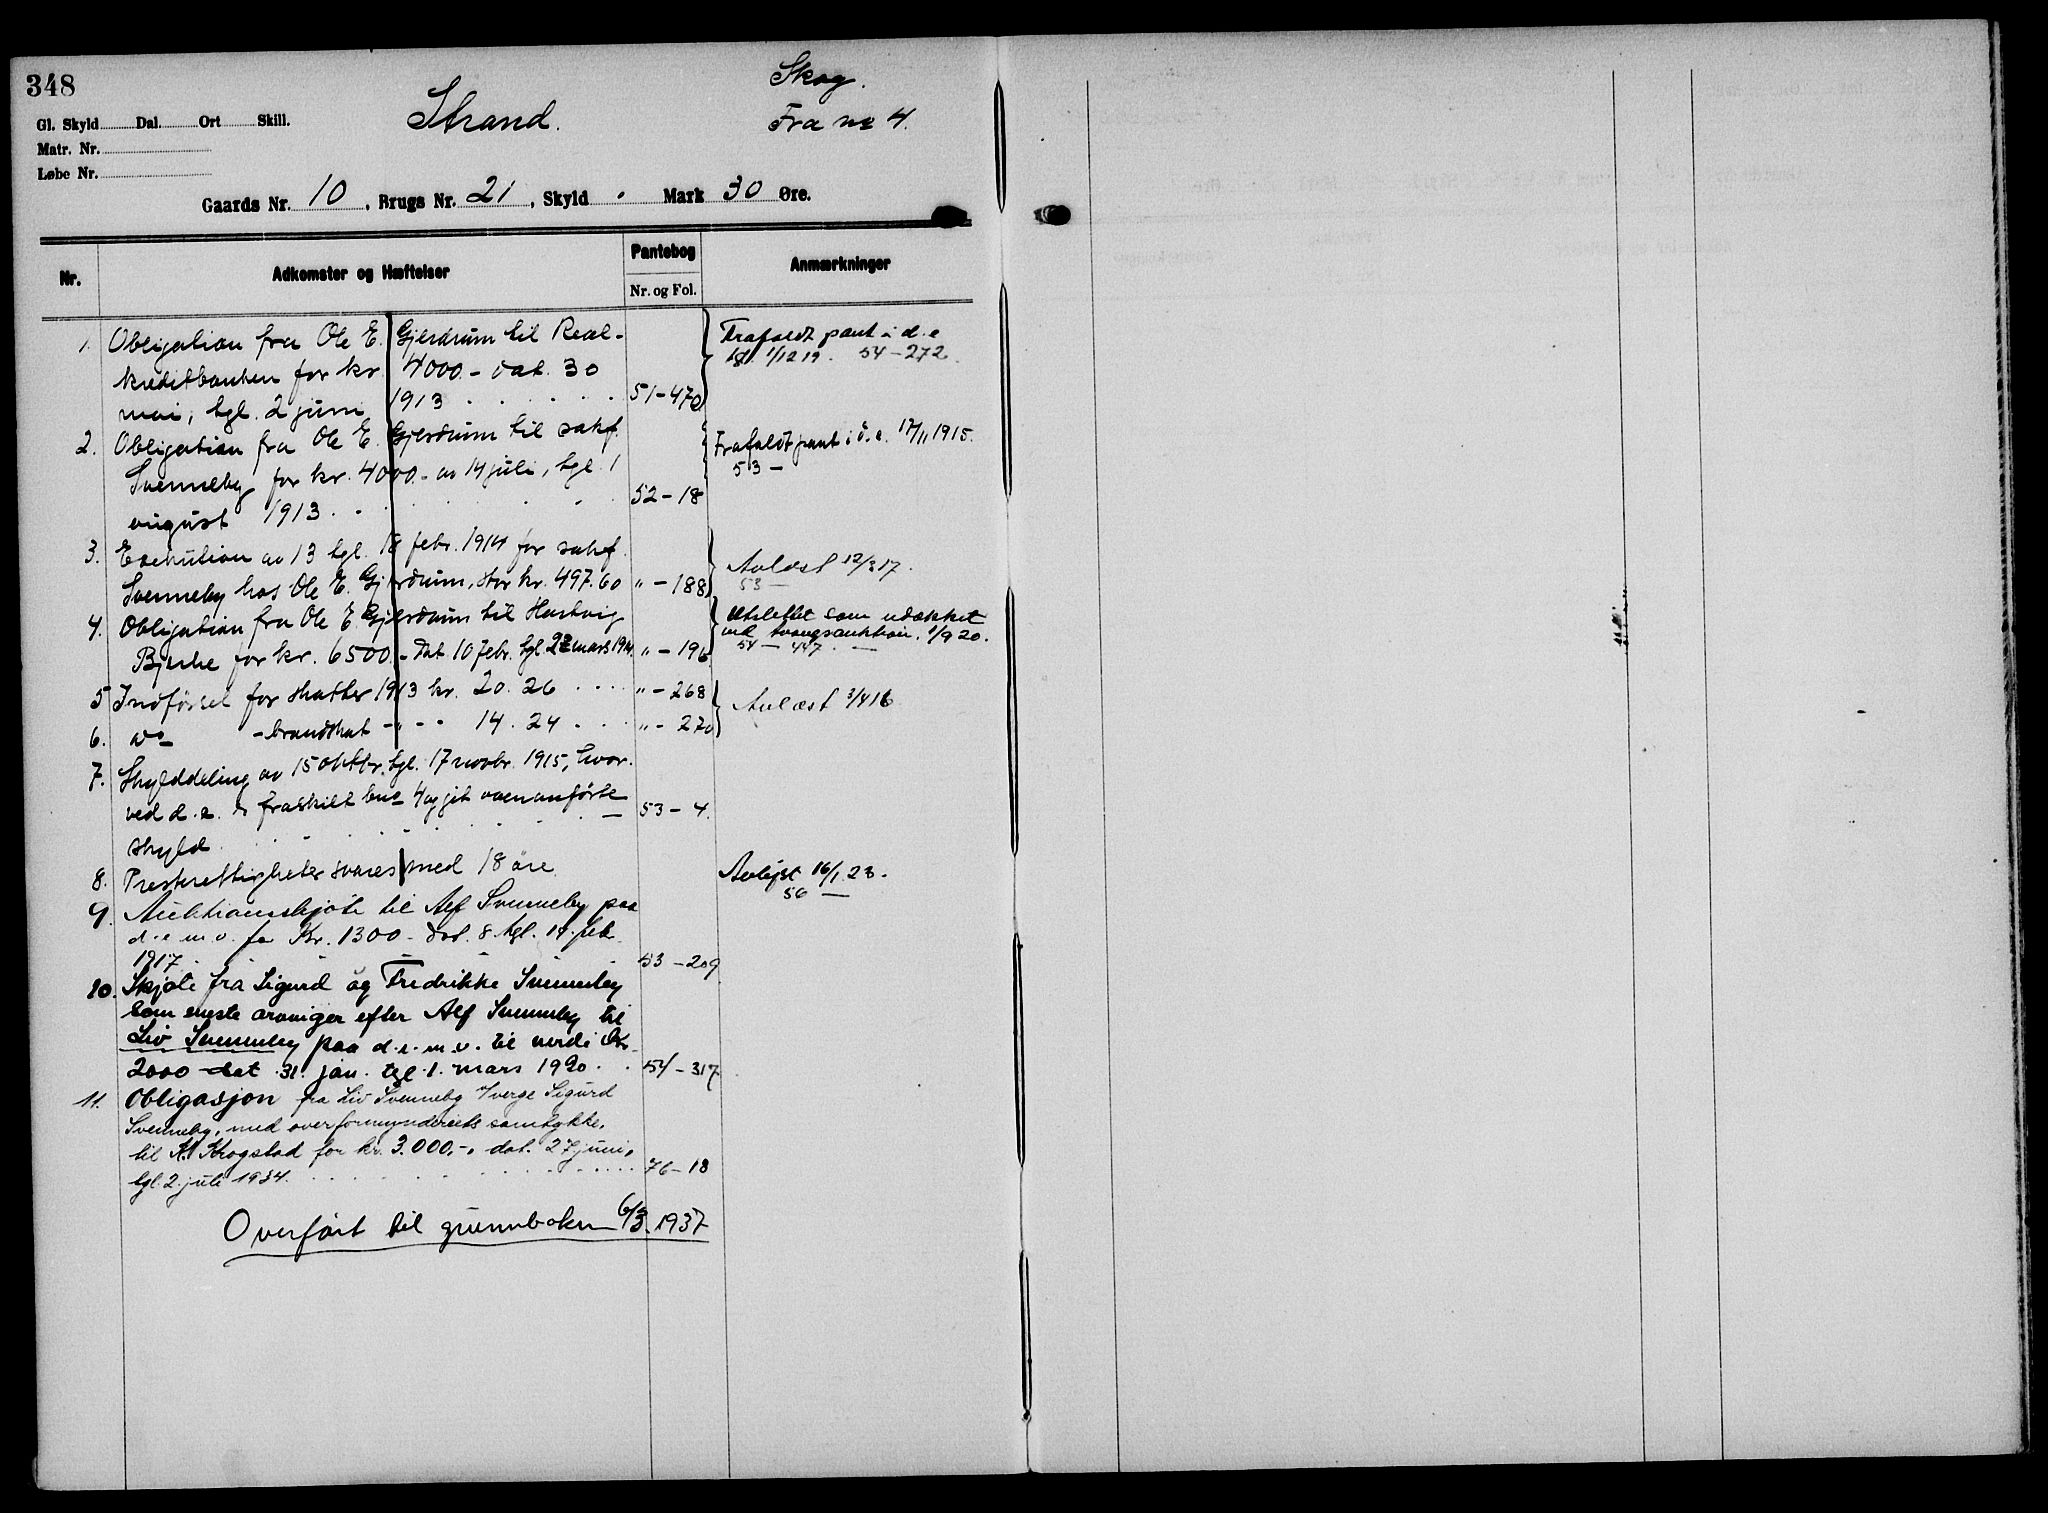 348
Skog.
Strand.
Fra no 4.
Gl. Skyld Dal. Ort Skill.
Matr. Nr.
Løbe Nr.
Gaards Nr. 10, Brugs Nr. 21, Skyld · Mark 30 Øre.
Nr. Adkomster og Hæftelser Pantebog Nr. og Fol. Anmærkninger
1. Obligation fra Ole E. Gjerdrum til Real-
kreditbanken for kr. 4000.- dat. 30
mai, tgl. 2 juni 1913 51-470
Frafaldt pant i d.e
tgl. 1/12 19. 54-272.
2. Obligation fra Ole E. Gjerdrum til sakf.
Svenneby for kr. 4000.- av 14 juli, tgl. 1
august 1913 52-18
Frafaldt pant i d.e. 17/11 1915.
53 -
3. Exekution av 13 tgl. 18 febr. 1914 for sakf.
Svenneby hos Ole E. Gjerdrum, stor kr. 497.60 " - 188
Avlæst 12/3 17.
53 -
4. Obligation fra Ole E Gjerdrum til Hartvig
Bjerke for kr. 6500.- Dat 10 febr. tgl. 22 mars 1914. " - 196
Utslettet som udækket
ved tvangsauktion. 1/9 20.
54 - 447. -
5 Indførsel for skatter 1913 kr. 20.26 " - 268
6. do - brandskat - " - - 14.24 " - 270
Avlæst 3/4 16
7. Skylddeling av 15 oktbr. tgl. 17 novbr. 1915, hvor-
ved d.e. er fraskilt bno 4 og git ovenanførte
skyld 53 - 4.
8. Presterettigheter svares med 18 øre.
Avlyst 16/1 23.
56 -
9. Auktionsskjøte til Alf Svenneby paa
d.e.m.v. for Kr. 1300 - dat. 8 tgl. 14. feb.
1917. 53 - 209
10. Skjøte fra Sigurd og Fredrikke Svenneby
som eneste arvinger efter Alf Svenneby til
Liv Svenneby paa d.e.m.v. til verdi Kr.
2000 dat. 31. jan. tgl. 1. mars 1920. 54-317
11. Obligasjon fra Liv Svenneby v/verge Sigurd
Svenneby, med overformynderiets samtykke,
til Kr. Krogstad for kr. 3.000,-, dat. 27 juni,
tgl. 2. juli 1934. 76-18
Overført til grunnboken 6/3. 1937